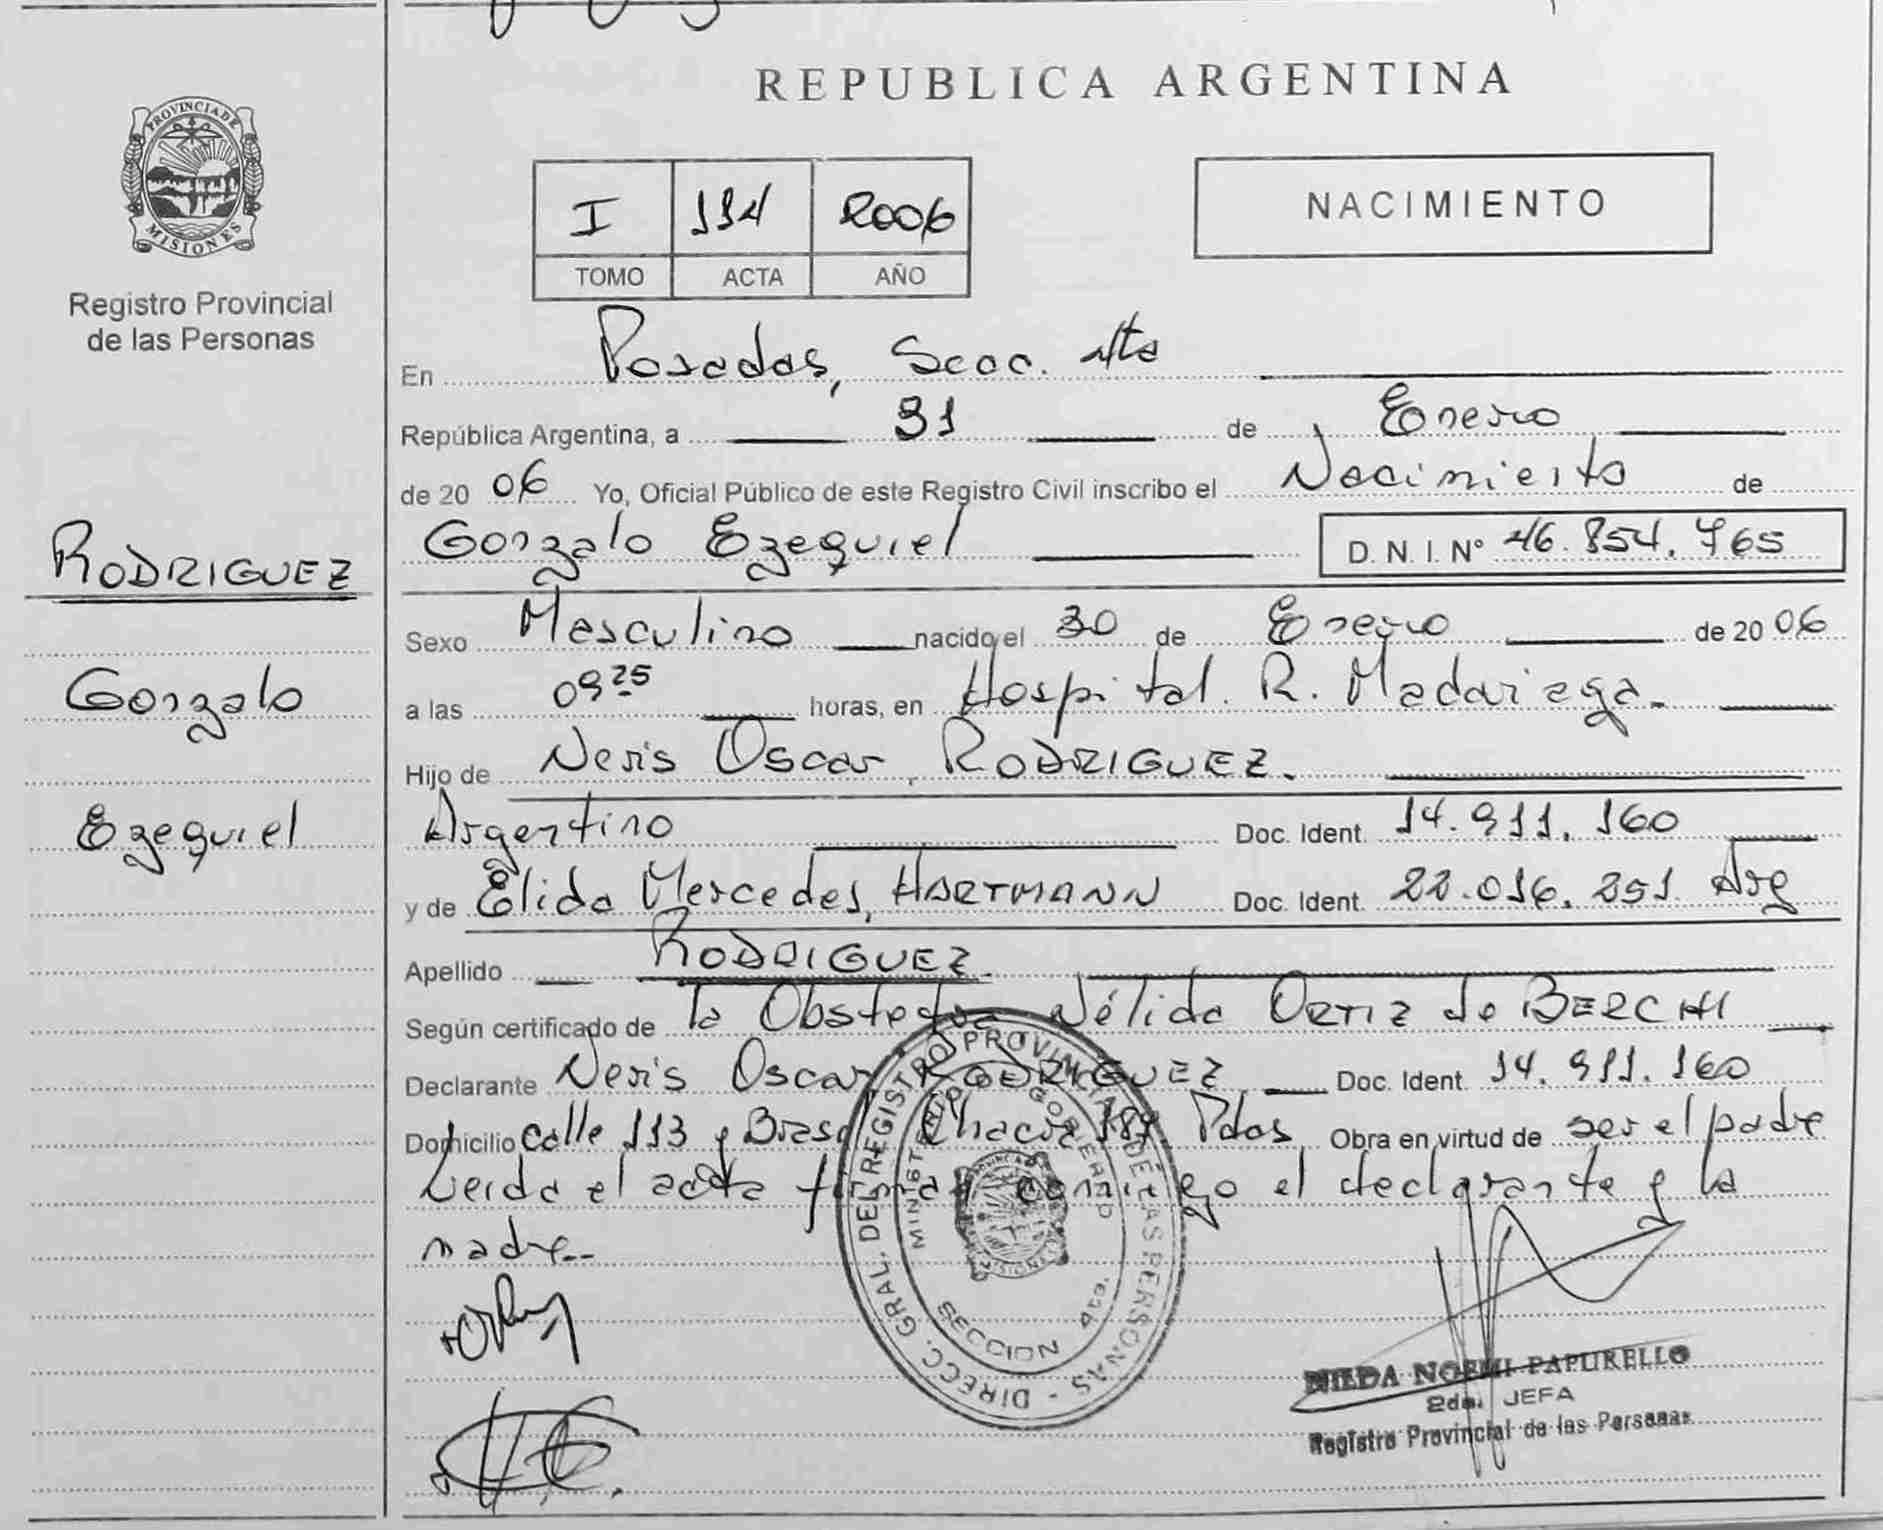 REPUBLICA ARGENTINA
PROVINCIA DE MISIONES
Registro Provincial
de las Personas
NACIMIENTO
I 114 2006
TOMO ACTA AÑO
En Posadas, Secc. 4ta
República Argentina, a 31 de Enero
de 2006 Yo, Oficial Público de este Registro Civil inscribo el Nacimiento de
Gonzalo Ezequiel D.N.I. Nº 46.854.765
RODRIGUEZ
Gonzalo
Ezequiel
Sexo Masculino nacido el 30 de Enero de 2006
a las 09 25 horas, en Hospital. R. Madariaga.
Hijo de Neris Oscar, RODRIGUEZ.
Argentino Doc. Ident. 14.911.160
y de Elida Mercedes, HARTMANN Doc. Ident. 22.016.251. Arg
Apellido RODRIGUEZ.
Según certificado de la Obstetra Nélida ORTIZ de BERCHI
Declarante Neris Oscar RODRIGUEZ Doc. Ident. 14.911.160
Domicilio calle 113 y Brasil Chacra 189 Pdas Obra en virtud de ser el padre
Leida el acta firman conmigo el declarante y la
madre.-
DIRECC. GRAL. DEL REGISTRO PROVINCIAL DE LAS PERSONAS
MINISTERIO DE GOBIERNO
PROVINCIA DE MISIONES
SECCION 4ta.
NILDA NOEMI PAPURELLO
2da. JEFA
Registro Provincial de las Personas